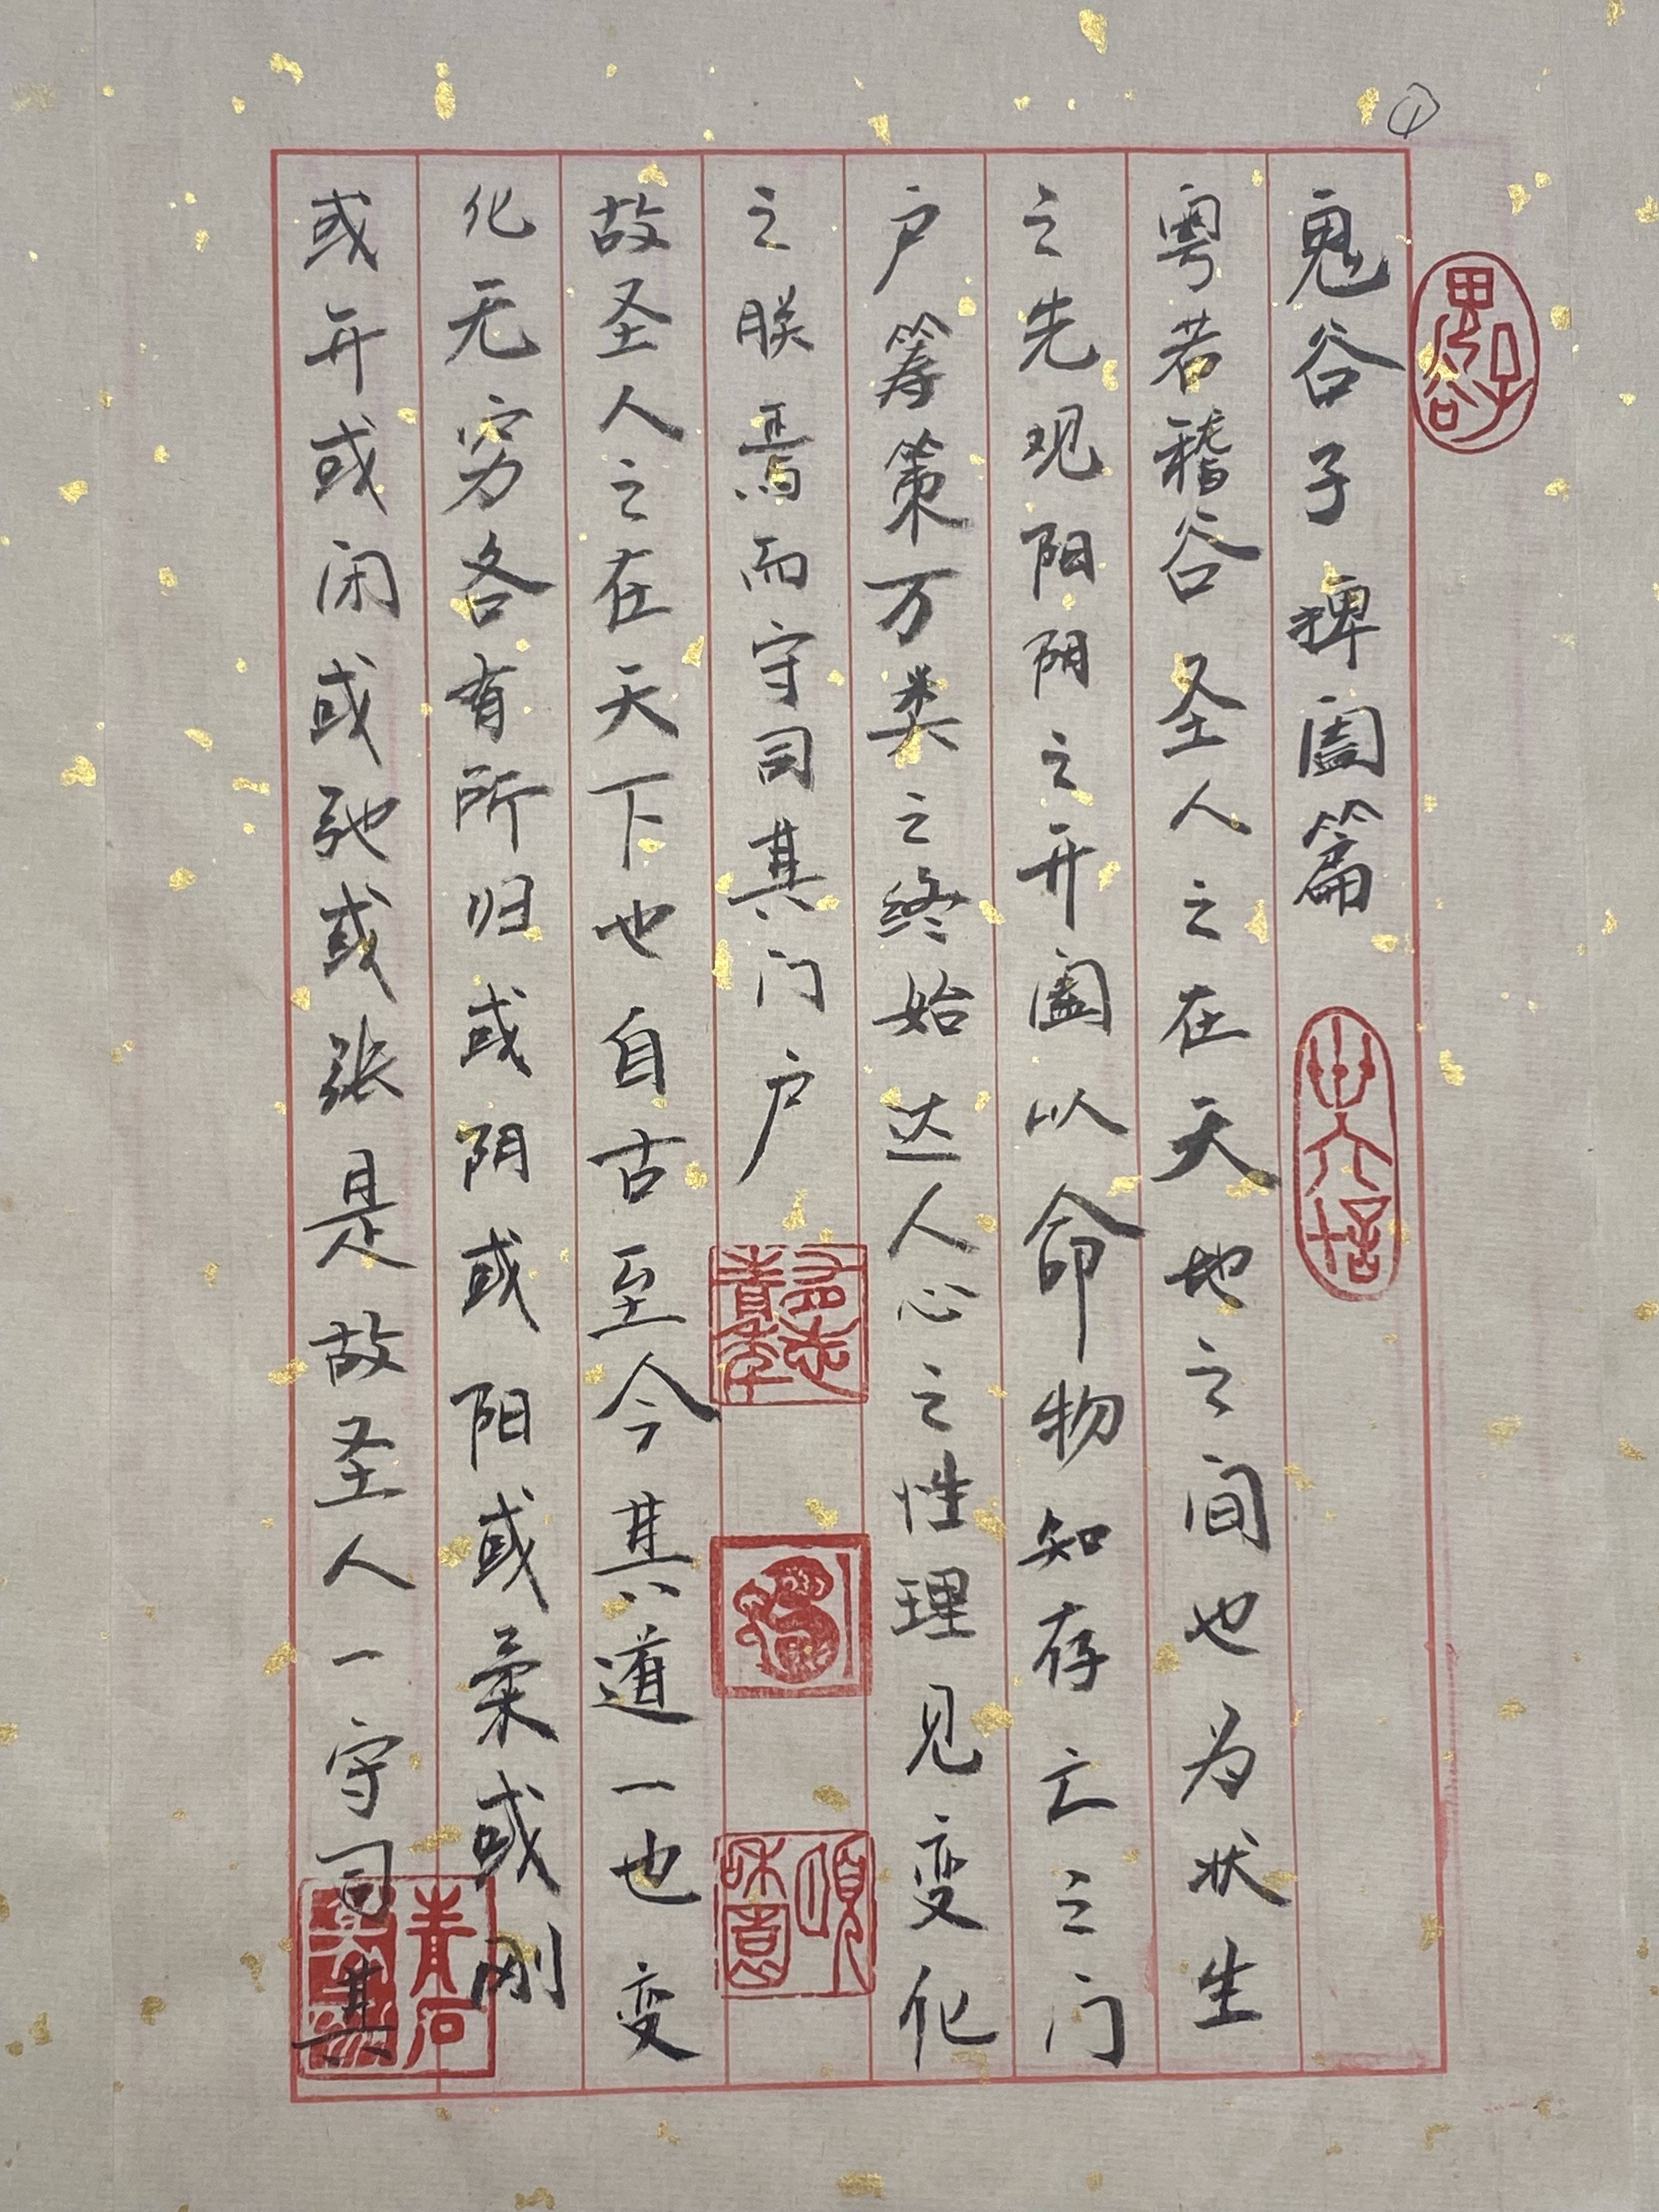 ①
鬼谷子
鬼谷子捭阖篇
粤若稽谷圣人之在天地之间也为状生
之先观阳阴之开阖以命物知存亡之门
户筹策万类之终始达人心之性理见变化
之朕焉而守司其门户
故圣人之在天下也自古至今其道一也变
化无穷各有所归或阴或阳或柔或刚
或开或闭或弛或张是故圣人一守司其
青石